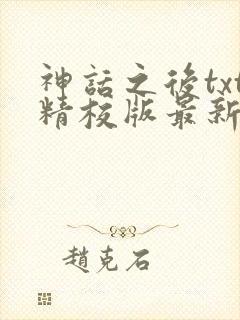 神話之後txt
精校版最新
趙克石